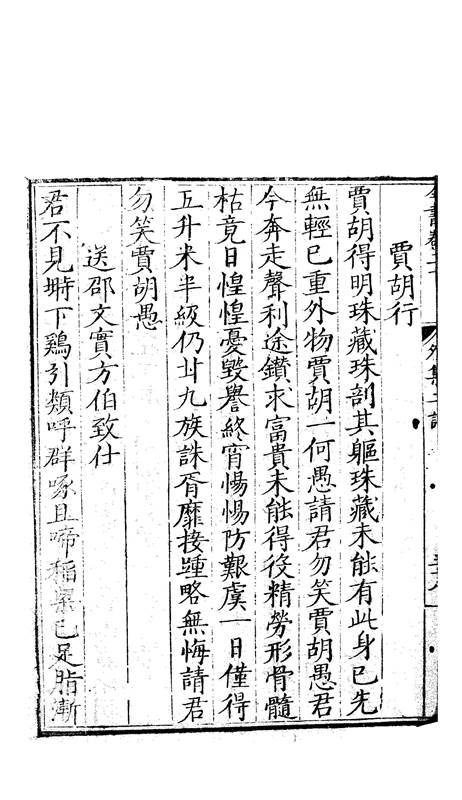 賈胡行
賈胡得明珠藏珠剖其軀珠藏未能有此身已先
無輕己重外物賈胡一何愚請君勿笑賈胡愚君
今奔走聲利途鑚求富貴未能得役精勞形骨髓
枯竟日惶惶憂毀譽終宵惕惕防艱虞一日僅得
五升米半級仍甘九族誅胥靡接踵略無悔請君
勿笑賈胡愚
送邵文實方伯致仕
君不見塒下鷄引類呼群啄且啼稻粱已足脂漸